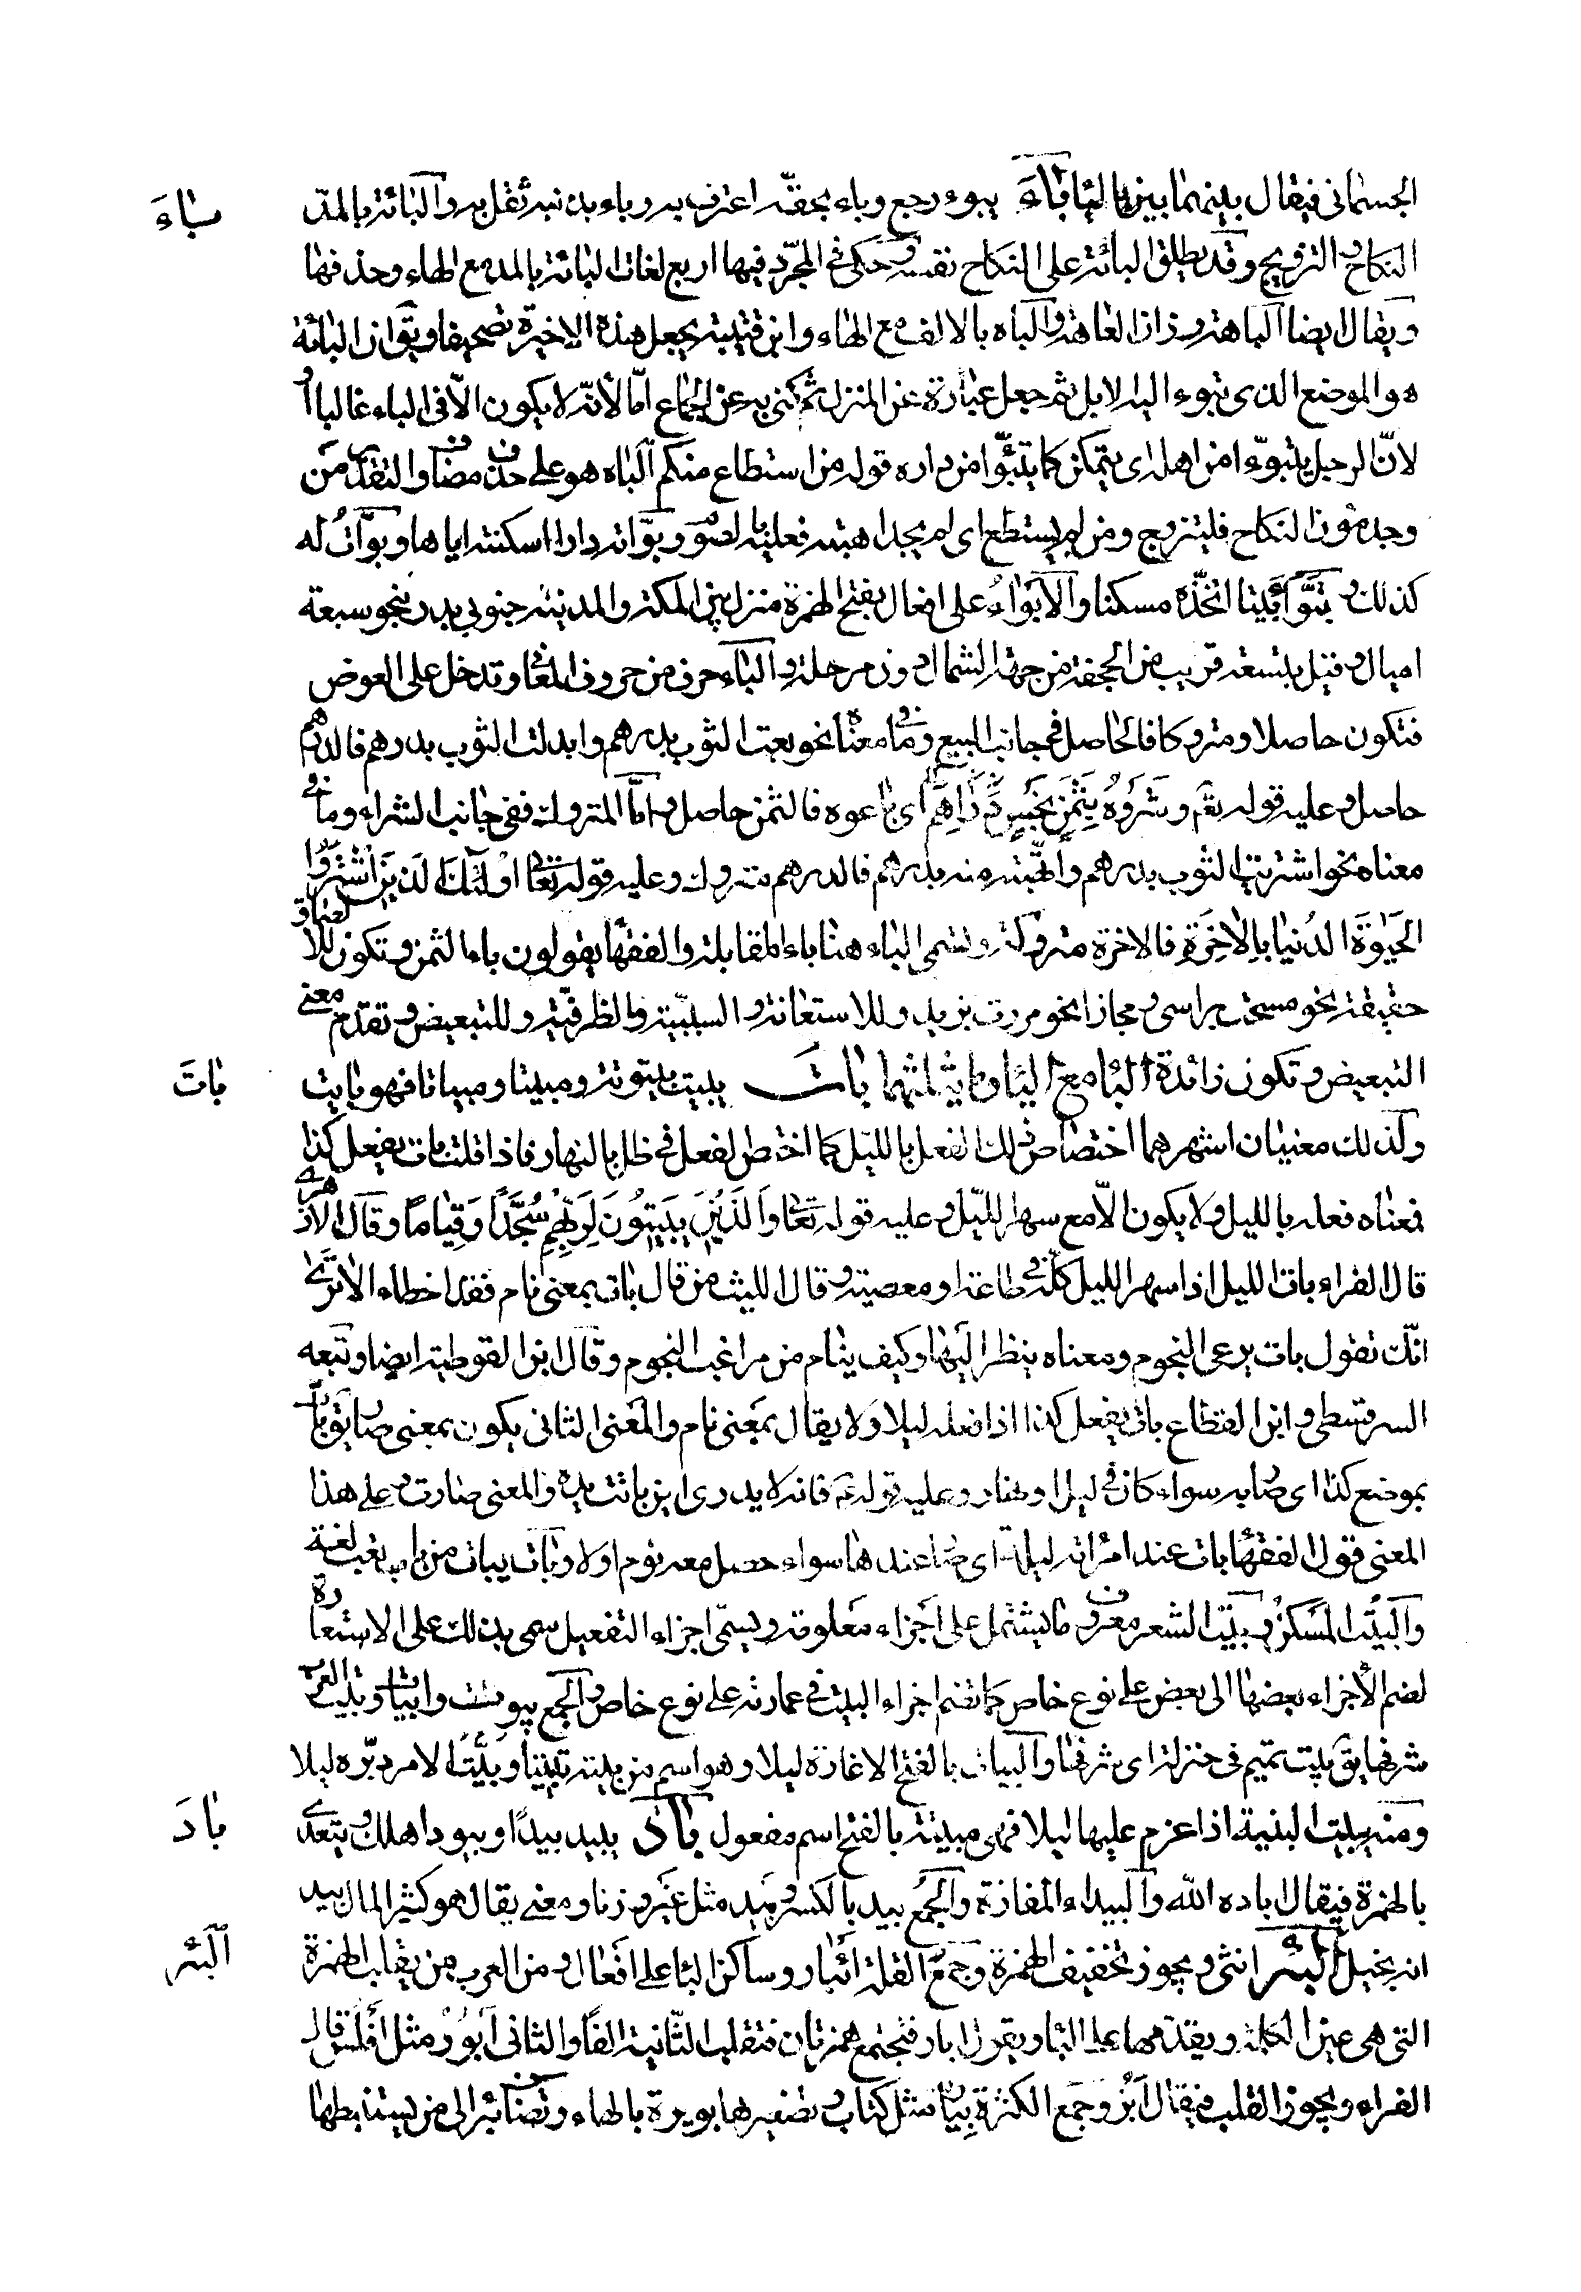 الجسمانى فيقال بينهما بين بالياء باءَ يبوء رجع وباء بحقّه اعترف به وباء بذنبه ثقل به والبائة بالمدّ
باءَ
النكاح والتزويج وقد يطلق البائة على النكاح نفسه وحكى فى المجرّد فيها اربع لغات البائة بالمد مع الهاء وحذفها
ويقال ايضا الباهة وزان العاهة والباه بالالف مع الهاء وابن قتيبة يجعل هذه الاخيرة تصحيفا ويقوان البائة
هو الموضع الذى تبوء اليه الابل ثم جعل عبارة عن المنزل ثم كنى به عن الجماع امّا لأنّه لا يكون الّا فى الباء غالبا او
لانّ الرجل يتبوّء امن اهله اى يتمكن كما يتبوّا من داره قوله من استطاع منكم الباه هو على حذف مضاف والتقدير من
وجد مؤن النكاح فليتزوج ومن لم يستطع اى لم يجد اهبته فعليه بالصوم وبوّاته دارا اسكنته اياها وبوّاتُ له
كذلك وتبوَّأ بيتا اتخذه مسكنا والأبواءُ على افعال بفتح الهمزة منزل بين المكة والمدينة جنوبى بدر بنحو سبعة
اميال وقيل بتسعة قريب من الجحفة من جهة الشمال دون مرحلة والباء حرف من حروف المعانى وتدخل على العوض
فتكون حاصلا ومتروكا فالحاصل فى جانب البيع وما فى معناه نحو بعت الثوب بدرهم وابدلت الثوب بدرهم فالدرهم
حاصل وعليه قوله تعم وشَرَوْهُ بِثَمَنٍ بَخْسٍ دَراهِمَ اى باعوه فالثمن حاصل وامّا المتروك ففى جانب الشراء وما فى
معناه نحو اشتريت الثوب بدرهم واتّهبته منه بدرهم فالدرهم متروك وعليه قوله تعالى اولئك الذين اشتَرَوُا
الحَيوةَ الدُنيا بِالأخِرَةِ فالاخرة متروكة وتسمى الباء هنا باء المقابلة والفقهاء يقولون باء الثمن وتكون للالصاق
حقيقة نحو مسحت براسى ومجازا نحو مررت بزيد وللاستعانة والسببيّة والظرفيّة وللتبعيض وتقدم معنى
التبعيض وتكون زائدة البا مع اليا وما يثلثهما باتَ يبيت بيتوتة ومبيتا ومباتا فهو بايت
باتَ
ولذلك معنيان اشهرهما اختصاص ذلك الفعل بالليل كما اختص الفعل فى ظل بالنهار فاذا قلت بات يفعل كذا
فمعناه فعله بالليل ولا يكون الّا مع سهر الليل وعليه قوله تعالى وَالذَينَ يَبيتُونَ لِرَبِّهِمْ سُجَّدًا وَقِياما وقال الازهرى
قال الفراء بات الليل اذا سهر الليل كلّه فى طاعة او معصية وقال الليث من قال بات بمعنى نام فقد اخطاء الا ترى
انّك تقول بات يرعى النجوم ومعناه ينظر اليها وكيف ينام من مراغب النجوم وقال ابن القوطية ايضا وتبعه
السرقسطى وابن القطاع بات يفعل كذا اذا فعله ليلا ولا يقال بمعنى نام والمعنى الثانى يكون بمعنى صار يق بات
بموضع كذا اى صار به سواء كان فى ليل او نهار وعليه قوله ع فانه لا يدرى اين باتت يده والمعنى صارت وعلى هذا
المعنى قول الفقهاء بات عند امراته ليلة اى صار عندها سواء حصل معه نوم اولا وبات يبات من باب تعب لغة
والبيت المسكن وبيت الشعر معروف ما يشتمل على اجزاء معلومة ويسمّى اجزاء التفعيل سمى بذلك على الاستعارة
لضم الأجزاء بعضها الى بعض على نوع خاص كما تضم اجزاء البيت فى عمارته على نوع خاص والجمع بيوت وابيات وبيت العرب
شرفها يق بيت تميم فى حنزلة اى شرفها والبيات بالفتح الاغارة ليلا وهو اسم من بيته تبييتا وبَيَّتَ الامر دبّره ليلا
ومنه بيت البنية اذا عزم عليها ليلا فهى مبيتة بالفتح اسم مفعول بادَ يبيد بيدًا وبيودا هلك ويتعدى
بادَ
بالهمزة فيقال اباده الله والبيداء المفازة والجمع بيد بالكسر وبَيد مثل غَير وزنا ومعنى يقال هو كثير المال بيد
انه بخيل البئر انثى ويجوز تخفيف الهمزة وجمع القلة ابئار وساكن البا على افعال ومن العرب من يقلب الهمزة
البئر
التى هى عين الكلمة ويقدمها على البا ويقول اابار فتجتمع همزتان فتقلب الثّانية الفًا والثانى أبؤُر مثل أفلُس قال
الفراء ويجوز القلب فيقال آبُر وجمع الكثرة بِيار مثل كتاب وتصغيرها بويرة بالهاء وتضاف بئر الى من يستنبطها